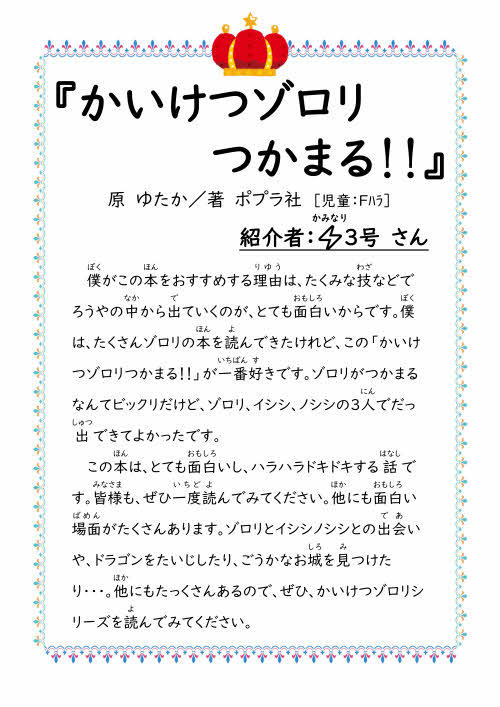 『かいけつゾロリ
つかまる!!』
原 ゆたか／著 ポプラ社 [児童:Fﾊﾗ]
かみなり
紹介者:3号 さん
ぼく ほん りゆう わざ
僕がこの本をおすすめする理由は、たくみな技などで
なか で おもしろ ぼく
ろうやの中から出ていくのが、とても面白いからです。僕
ほん よ
は、たくさんゾロリの本を読んできたけれど、この「かいけ
いちばん す
つゾロリつかまる!!」が一番好きです。ゾロリがつかまる
にん
なんてビックリだけど、ゾロリ、イシシ、ノシシの3人でだっ
しゅつ
出できてよかったです。
ほん おもしろ はなし
この本は、とても面白いし、ハラハラドキドキする話で
みなさま いちど よ ほか おもしろ
す。皆様も、ぜひ一度読んでみてください。他にも面白い
ばめん で あ
場面がたくさんあります。ゾロリとイシシノシシとの出会い
しろ み
や、ドラゴンをたいじしたり、ごうかなお城を見つけた
ほか
り・・・。他にもたっくさんあるので、ぜひ、かいけつゾロリシ
よ
リーズを読んでみてください。